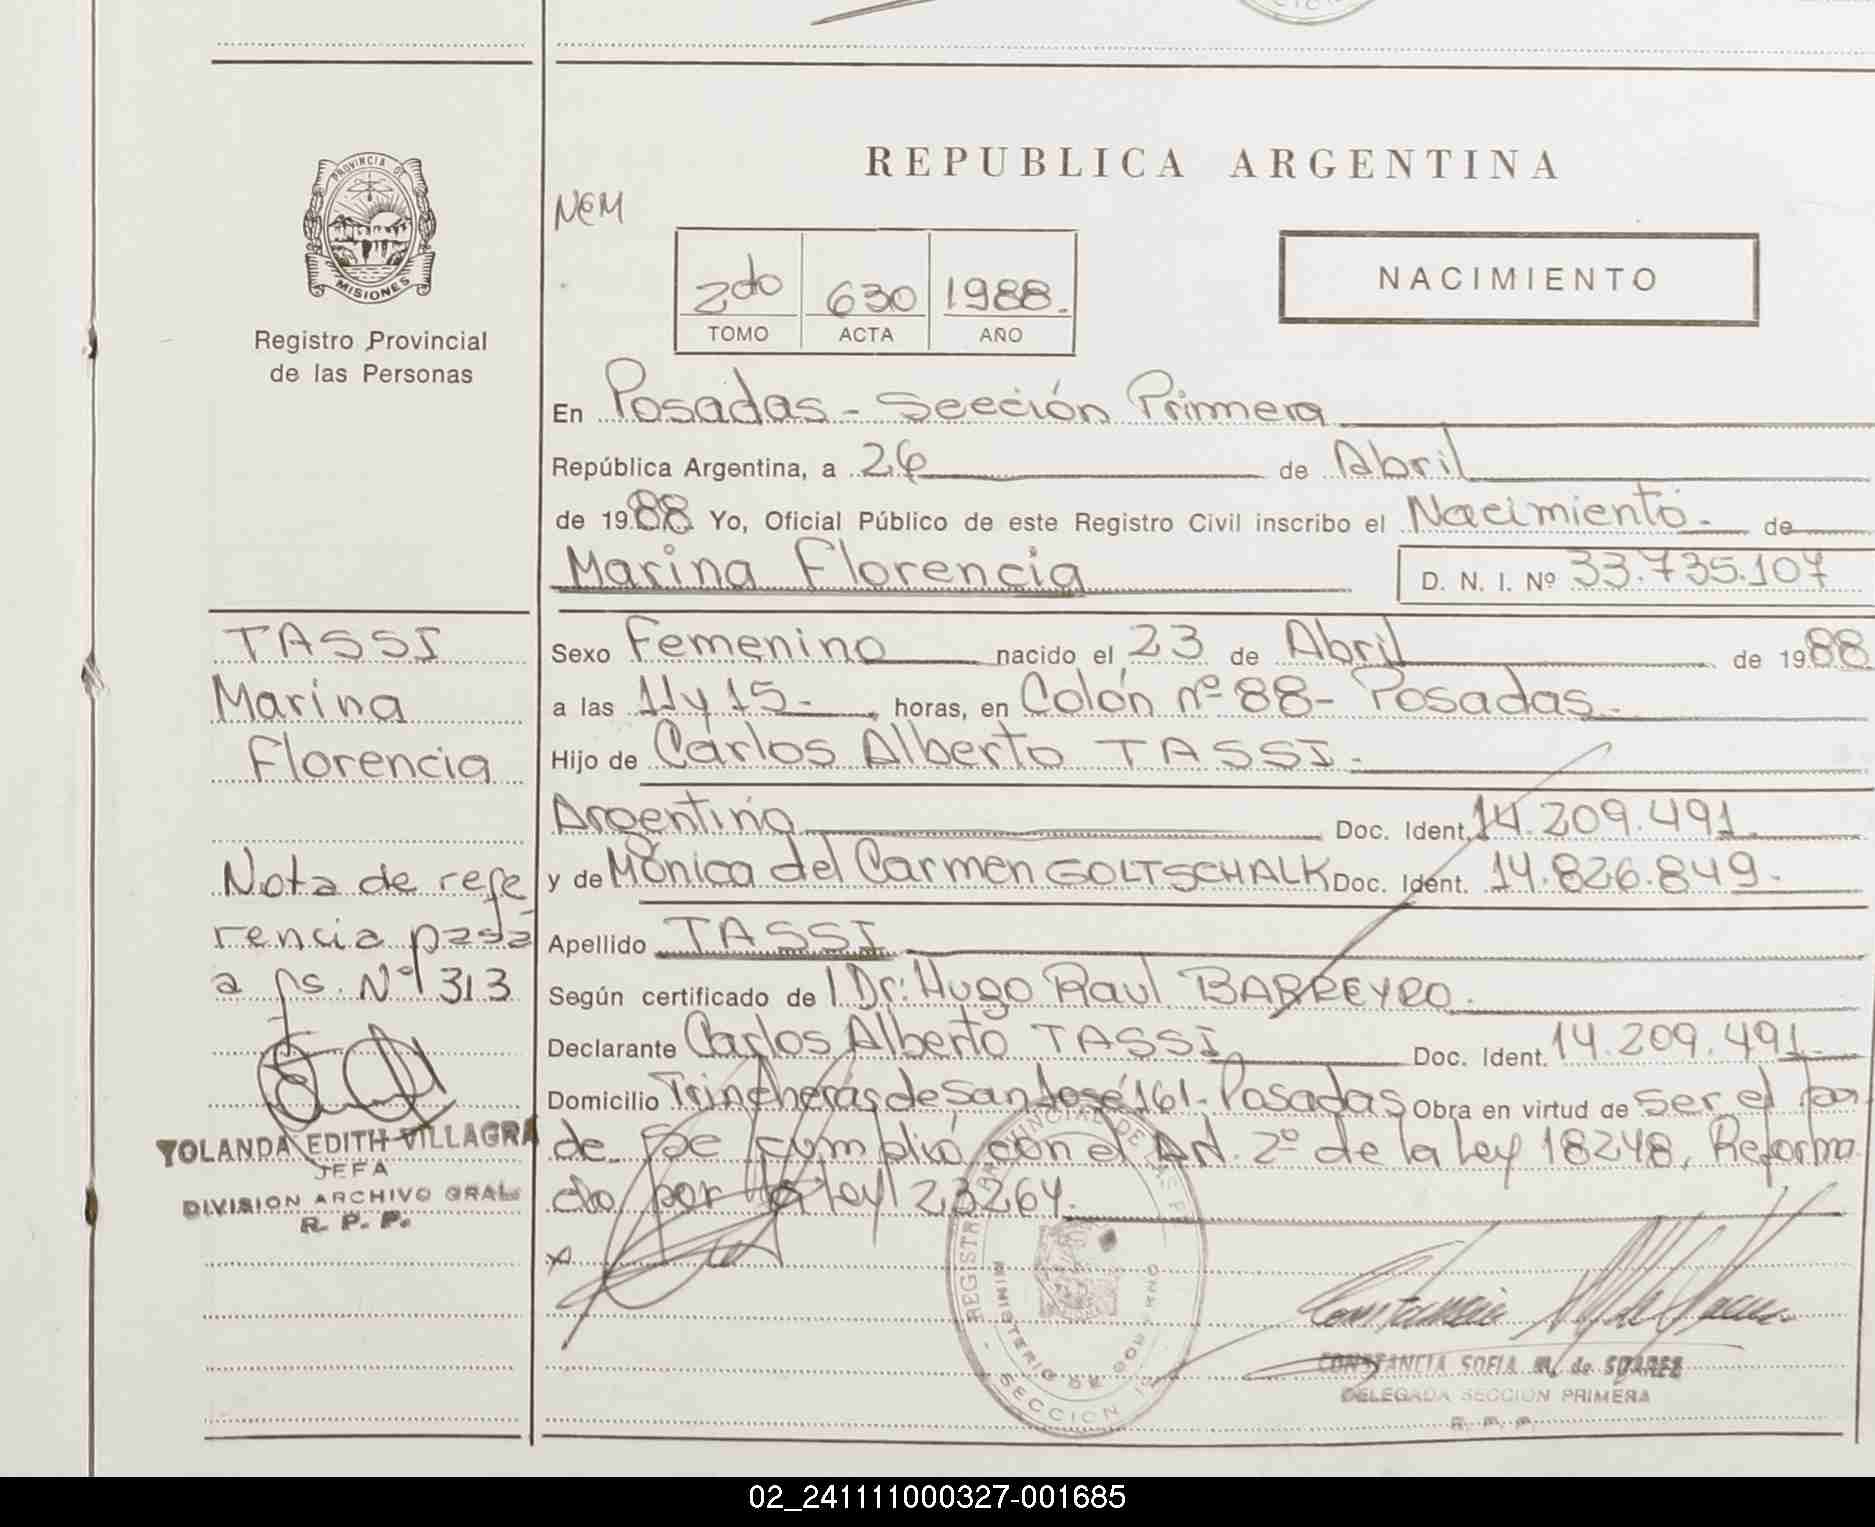 REPUBLICA ARGENTINA
PROVINCIA DE
MISIONES
Registro Provincial
de las Personas
NEM
2do 630 1988.
TOMO ACTA AÑO
NACIMIENTO
En Posadas - Sección Primera
República Argentina, a 26 de Abril
de 1988 Yo, Oficial Público de este Registro Civil inscribo el Nacimiento. de
Marina Florencia D. N. I. Nº 33.735.107
TASSI
Marina
Florencia
Sexo Femenino nacido el 23 de Abril de 1988
a las 11 y 15 - horas, en Colón nº 88 - Posadas.
Hijo de Carlos Alberto TASSI.
Argentina Doc. Ident. 14.209.491.
y de Mónica del Carmen GOLTSCHALK Doc. Ident. 14.826.849.
Apellido TASSI
Según certificado de Dr: Hugo Raul BARREYRO.
Declarante Carlos Alberto TASSI Doc. Ident. 14.209.491.
Domicilio Trincheras de San José 161. Posadas Obra en virtud de ser el pa
dre. Se cumplió con el Art. 2º de la Ley 18248, Reforma
do por la ley 23264.
Nota de refe
rencia pasa
a fs. Nº 313
YOLANDA EDITH VILLAGRA
JEFA
DIVISION ARCHIVO GRAL.
R. P. P.
MINISTERIO DE GOBIERNO
SECCION 1
CONSTANCIA SOFIA M. de SUAREZ
DELEGADA SECCION PRIMERA
R. P. P.
02_241111000327-001685